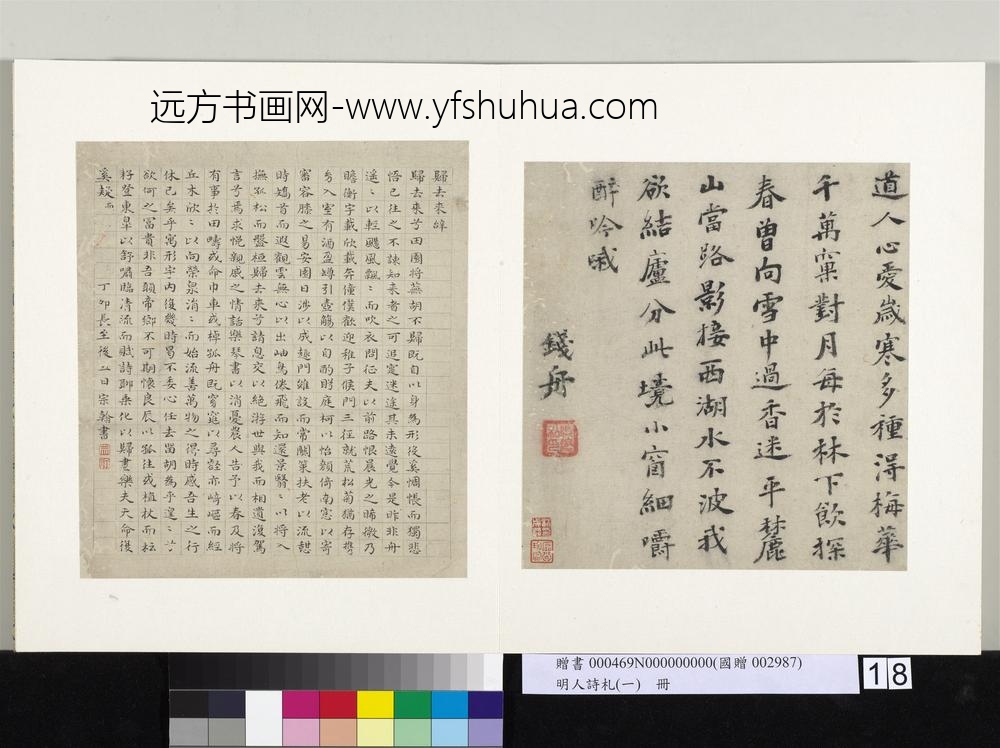 远方书画网-www.yfshuhua.com
道人心愛歲寒多種淂梅華
千萬窠對月每於林下飲探
春曽向雪中過香迷平麓
山當路影接西湖水不波我
欲結廬分此境小窗細嚼
醉吟哦
錢舟
歸去來辭
歸去來兮田園將蕪胡不歸既自以身為形役奚惆悵而獨悲
悟已往之不諫知來者之可追寔迷途其未遠覺今是昨非舟
遙〻以輕颺風飄〻而吹衣問征夫以前路恨晨光之晞微乃
瞻衡宇載欣載奔僮僕歡迎稚子候門三徑就荒松菊猶存攜
㓜入室有酒盈罇引壺觴以自酌眄庭柯以怡顏倚南窓以寄
審容膝之易安園日涉以成趣門雖設而常關策扶老以流憩
時矯首而遐觀雲無心以出岫鳥倦飛而知還景翳〻以將入
撫孤松而盤桓歸去來兮請息交以絕游世與我而相遺復駕
言兮焉求悅親戚之情話樂琴書以消憂農人告予以春及將
有事於田疇或命巾車或棹孤舟既窈窕以尋壑亦崎嶇而經
丘木欣〻以向榮泉涓〻而始流善萬物之得時感吾生之行
休已矣乎寓形宇內復幾時曷不委心任去留胡為乎遑〻兮
欲何之富貴非吾願帝鄉不可期懷良辰以孤往或植杖而耘
籽登東皋以舒嘯臨清流而賦詩聊乘化以歸盡樂夫天命復
奚疑
丁卯長至後二日宗翰書
贈書 000469N000000000(國贈 002987)
明人詩札(一) 冊
18